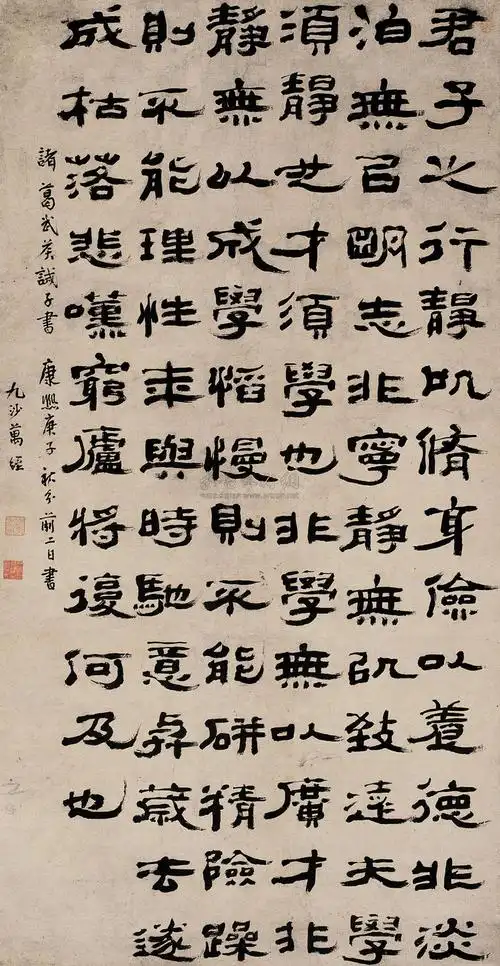 君子之行靜以脩身儉以養德非淡
泊無以明志非寧靜無以致遠夫學
須靜也才須學也非學無以廣才非
靜無以成學慆慢則不能研精險躁
則不能理性年與時馳意與歲去遂
成枯落悲嘆窮廬將復何及也
諸葛武侯誡子書 康熙庚子秋分前二日書
九沙萬經